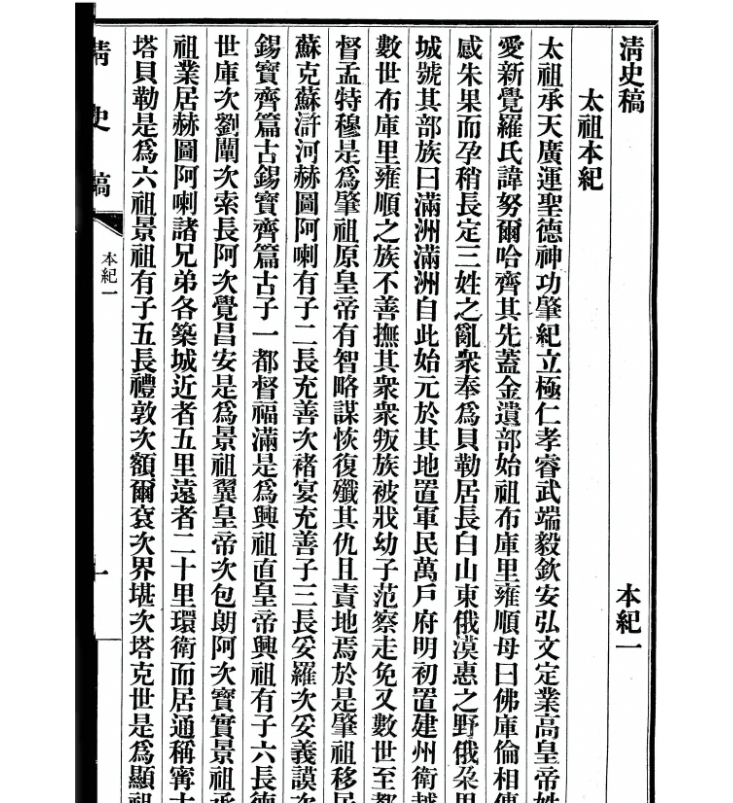 清史稿 本紀一
太祖本紀
太祖承天廣運聖德神功肇紀立極仁孝睿武端毅欽安弘文定業高皇帝姓
愛新覺羅氏諱努爾哈齊其先蓋金遺部始祖布庫里雍順母曰佛庫倫相傳
感朱果而孕稍長定三姓之亂衆奉爲貝勒居長白山東俄漠惠之野俄朶里
城號其部族曰滿洲滿洲自此始元於其地置軍民萬戶府明初置建州衛越
數世布庫里雍順之族不善撫其衆衆叛族被戕幼子范察走免又數世至都
督孟特穆是爲肇祖原皇帝有智略謀恢復殲其仇且責地焉於是肇祖移民
蘇克蘇滸河赫圖阿喇有子二長充善次褚宴充善子三長妥羅次妥義謨次
錫寶齊篇古錫寶齊篇古子一都督福滿是爲興祖直皇帝興祖有子六長德
世庫次劉闡次索長阿次覺昌安是爲景祖翼皇帝次包朗阿次寶實景祖承
祖業居赫圖阿喇諸兄弟各築城近者五里遠者二十里環衛而居通稱寗古
塔貝勒是爲六祖景祖有子五長禮敦次額爾袞次界堪次塔克世是爲顯祖
清史稿 本紀一 一